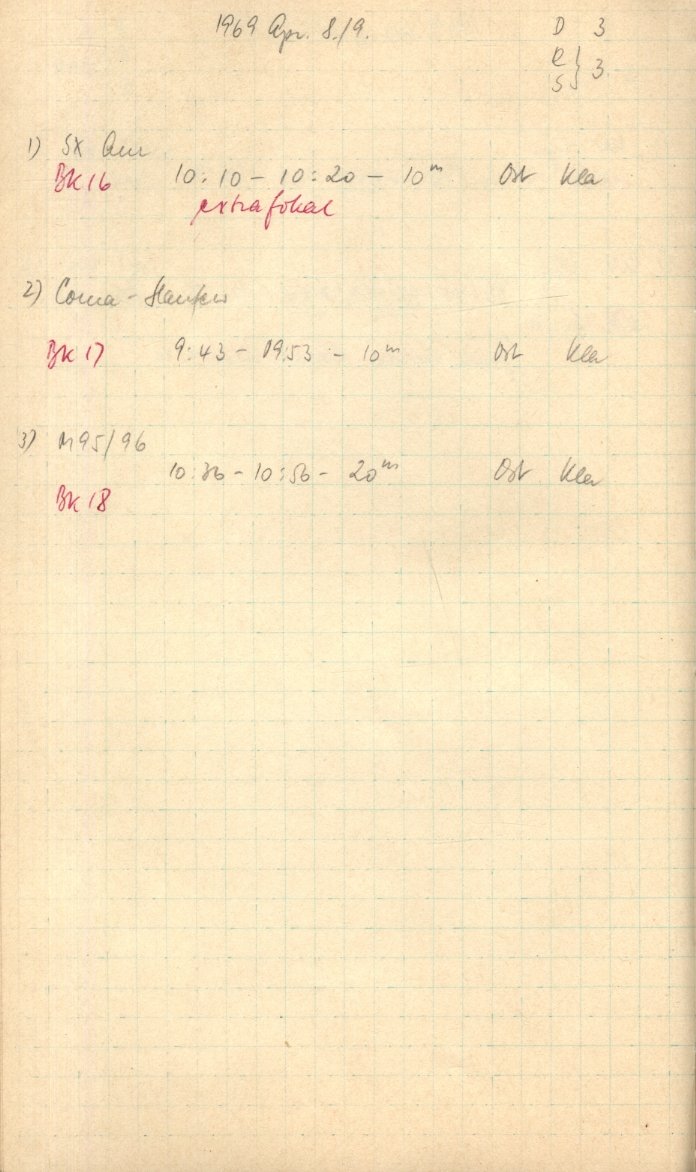 1969 Apr. 8./9.
D 3
R } 3
S
1) SX Aur
BK 16 10:10 - 10:20 - 10ᵐ Ost Kla
extrafokal
2) Coma - Haufen
BK 17 9:43 - 09:53 - 10ᵐ Ost Kla
3) M95/96
10:36 - 10:56 - 20ᵐ Ost Kla
BK 18